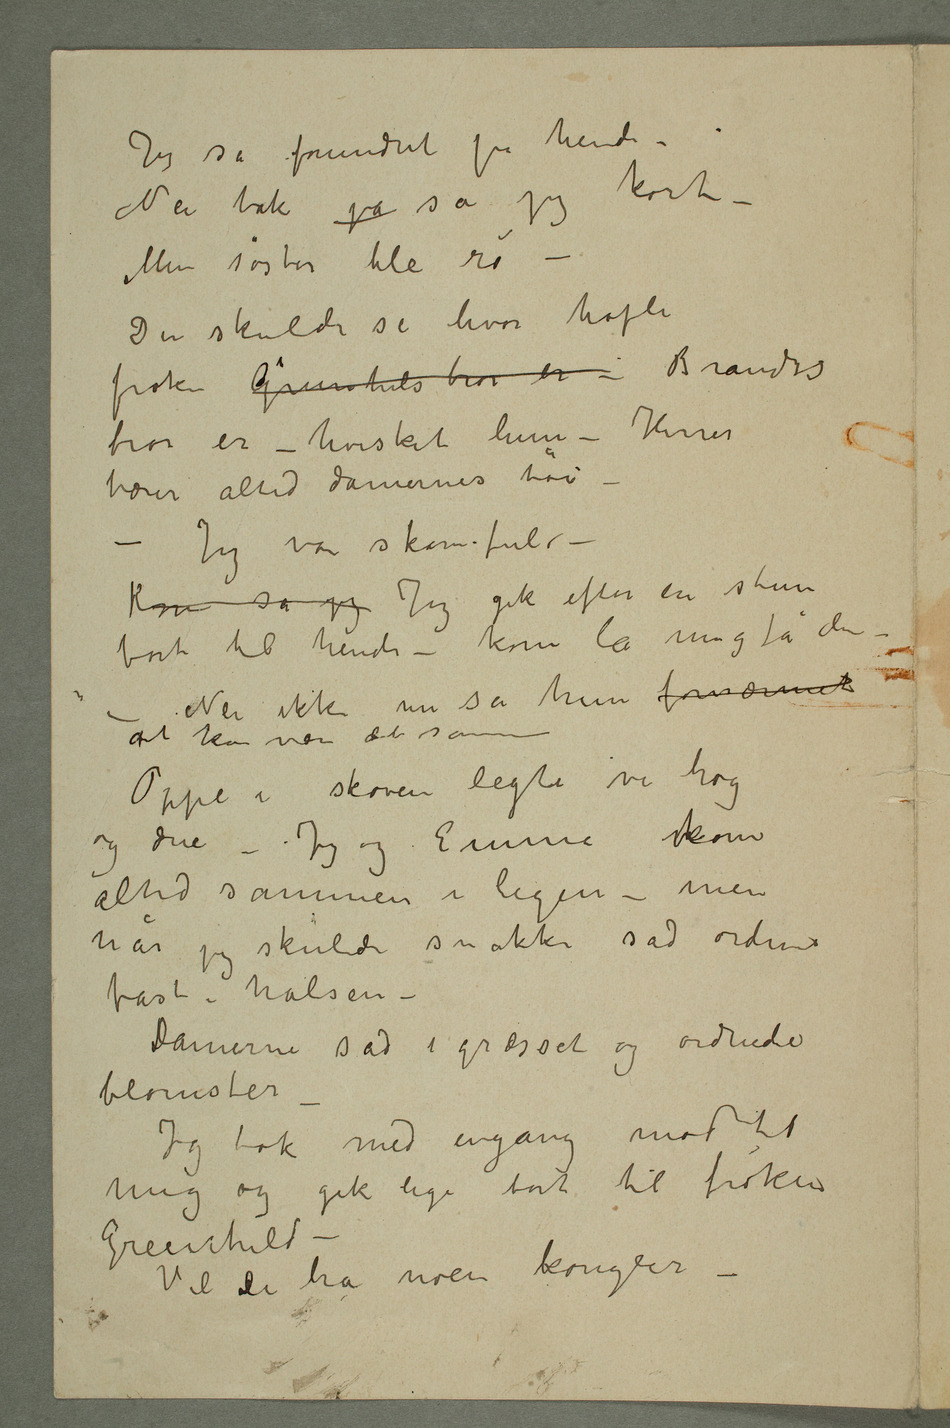 Jeg sa forundret på hende –
Nei tak ja sa jeg kort –
Min søster ble rø –
Du skulde se hvor høfli
frøken Greenhilds bror er – Brandts
bror er – hvisket hun – Herrer
bærer altid damernes tøi –
– Jeg var skamfuld –
Kom sa jeg Jeg gik efter en stun
bort til hende – kom la mig få den –
– Nei ikke nu sa hun fornærmet
det kan være det samme
Oppe i skoven legte vi høg
og due – Jeg og Emma kom
altid sammen i legen – men
når jeg skulde snakke sad ordene
fast i halsen –
Damerne sad i græsset og ordnede
blomster –
Jeg tok med engang mod til
mig og gik lige bort til frøken
Greenhild –
Vil De ha noen kongler –